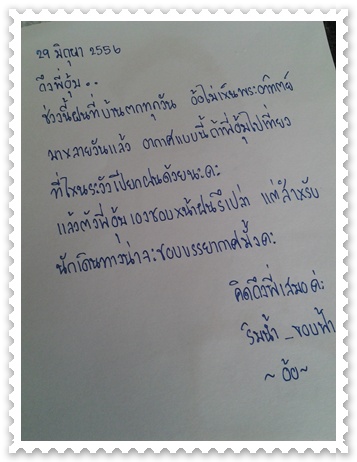 29 มิถุนา 2556
ถึงพี่อุ้ม..
ช่วงนี้ฝนที่บ้านตกทุกวัน อ้อไม่เห็นพระอาทิตย์
มาหลายวันแล้ว อากาศแบบนี้ถ้าพี่อุ้มไปเที่ยว
ที่ไหนระวังเปียกฝนด้วยนะคะ
แล้วตัวพี่อุ้มเองชอบหน้าฝนรึเปล่า แต่สำหรับ
นักเดินทางน่าจะชอบบรรยากาศมั้งคะ
คิดถึงพี่เสมอค่ะ
ริมน้ำ_ขอบฟ้า
~ อ้อ ~